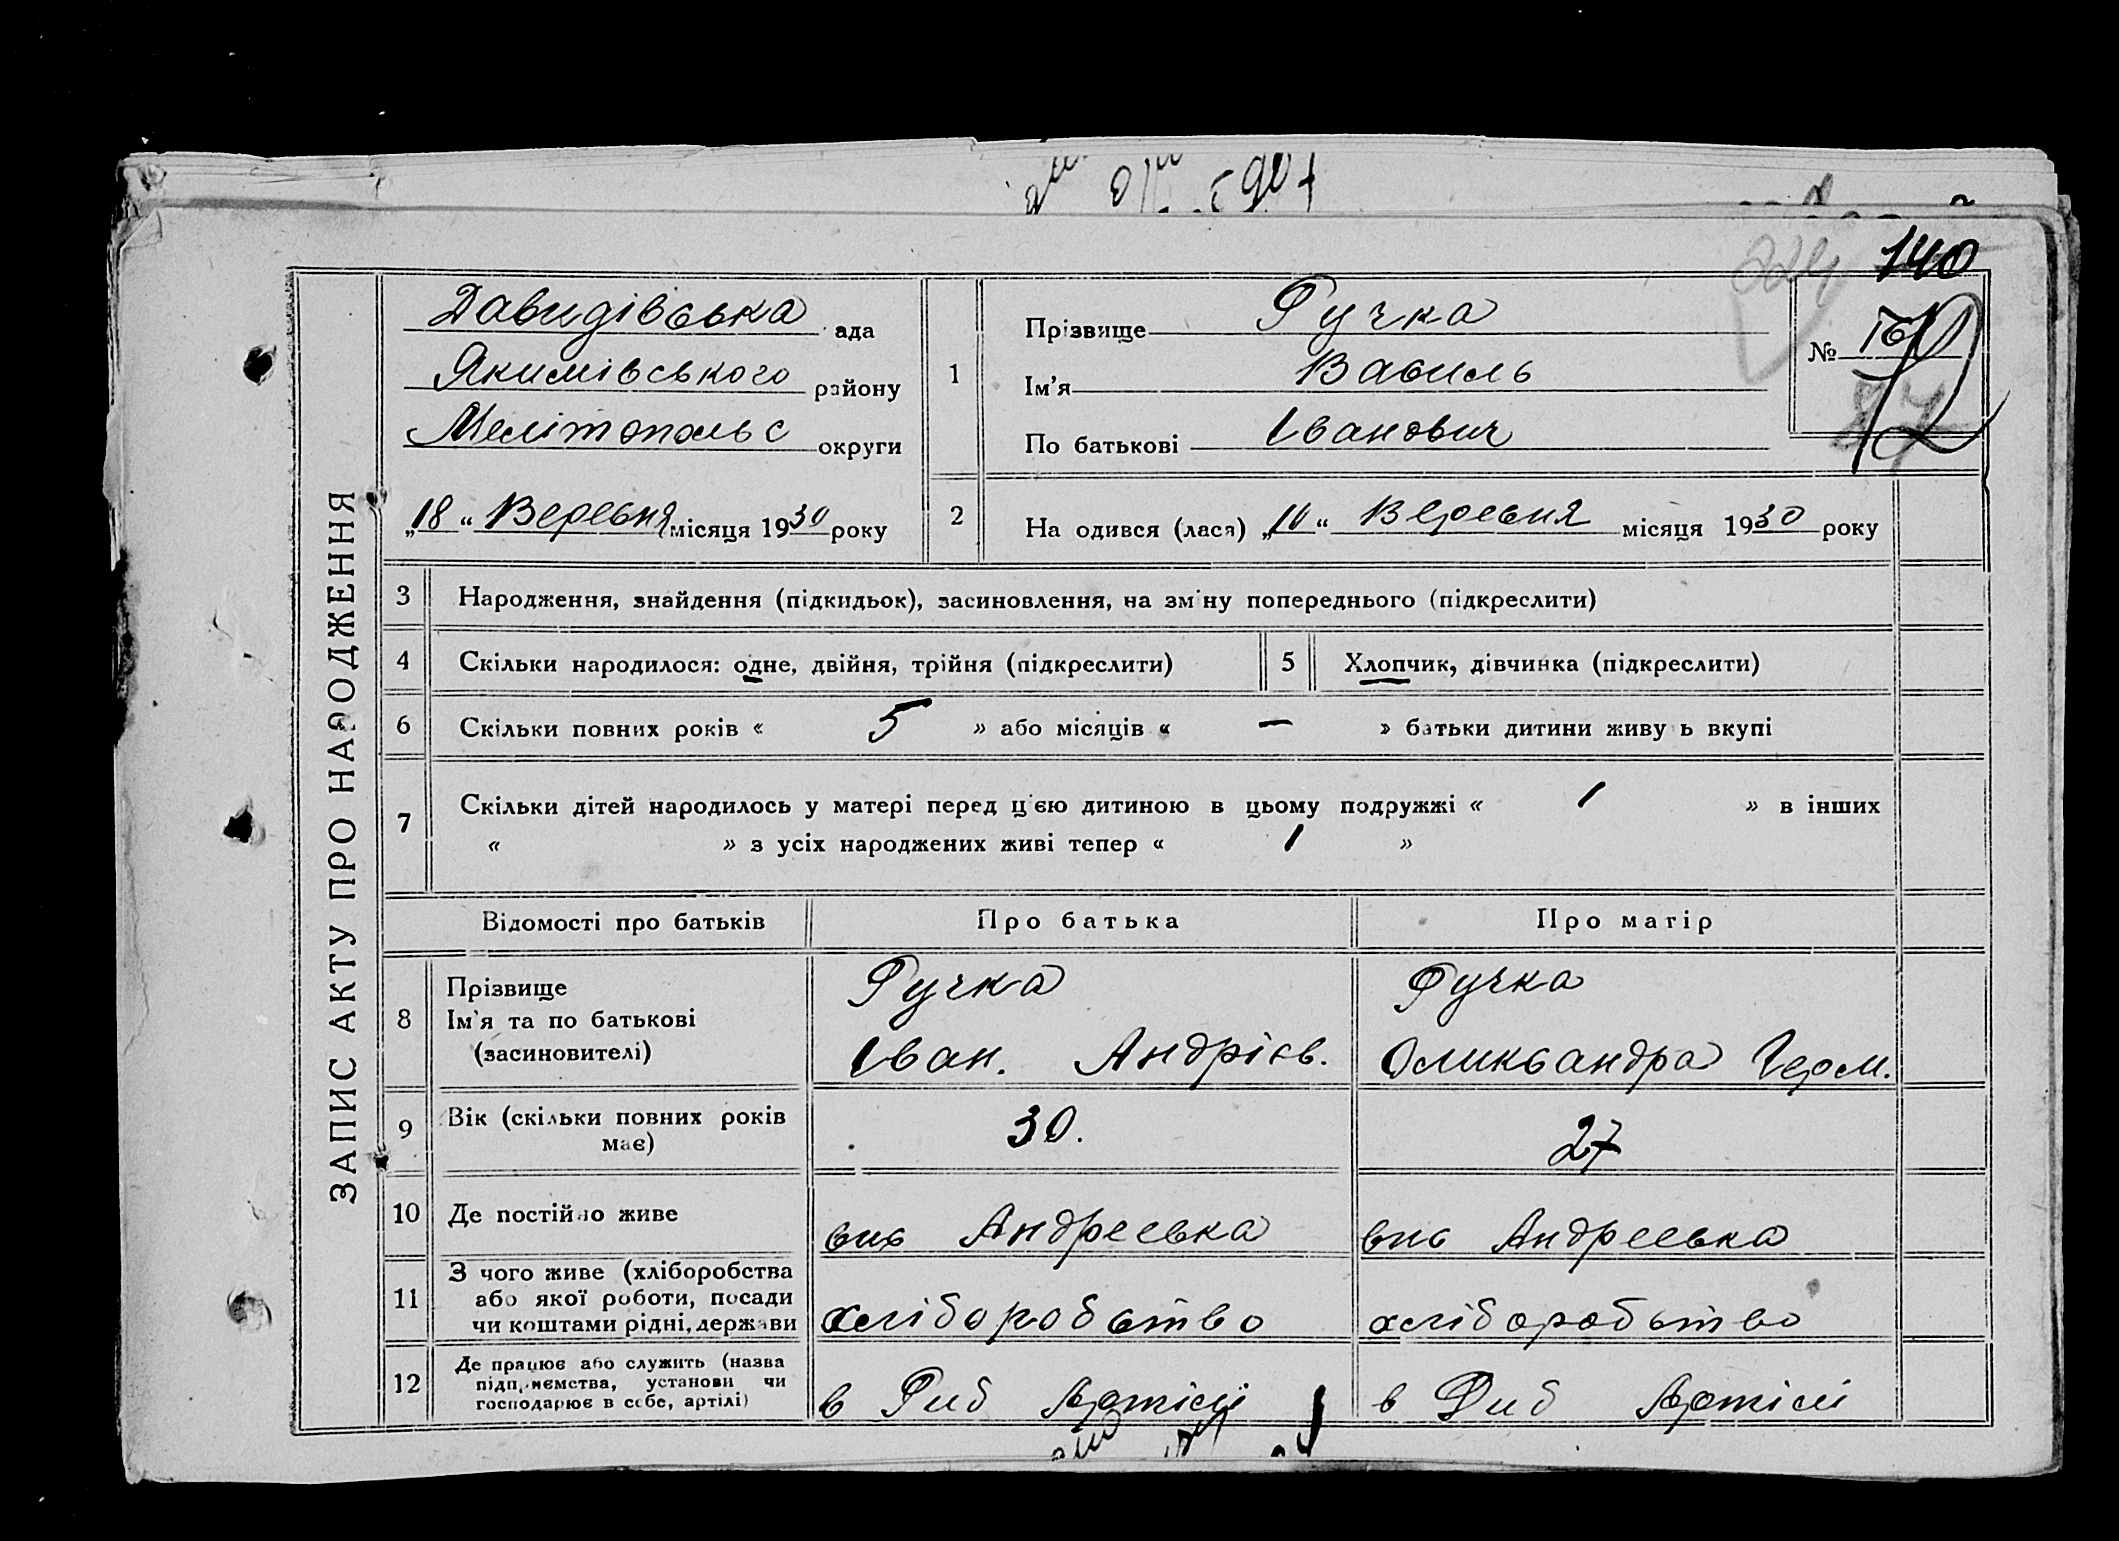 140
ЗАПИС АКТУ ПРО НАРОДЖЕННЯ
Давидівська ада
Якимівського району
Мелітопольс округи
„18“ Вересня місяця 1930 року
1
Прізвище Ручка
Ім'я Василь
По батькові Іванович
№
2
На одився (лася) „10“ Вересня місяця 1930 року
3 Народження, знайдення (підкидьок), засиновлення, на зміну попереднього (підкреслити)
4 Скільки народилося: одне, двійня, трійня (підкреслити)
5 Хлопчик, дівчинка (підкреслити)
6 Скільки повних років « 5 » або місяців « — » батьки дитини живу ь вкупі
7 Скільки дітей народилось у матері перед цією дитиною в цьому подружжі « 1 » в інших
« » з усіх народжених живі тепер « 1 »
Відомості про батьків Про батька Про матір
8 Прізвище
Ім'я та по батькові
(засиновителі)
Ручка
Іван. Андрієв.
Ручка
Олександра Герм.
9 Вік (скільки повних років
має)
30.
27
10 Де постійно живе
вис Андреевка
вис Андреевка
11 З чого живе (хліборобства
або якої роботи, посади
чи коштами рідні, держави
хліборобство
хліборобство
12 Де працює або служить (назва
підприємства, установи чи
господарює в себе, артілі)
в Риб Артілі
в Риб Артілі